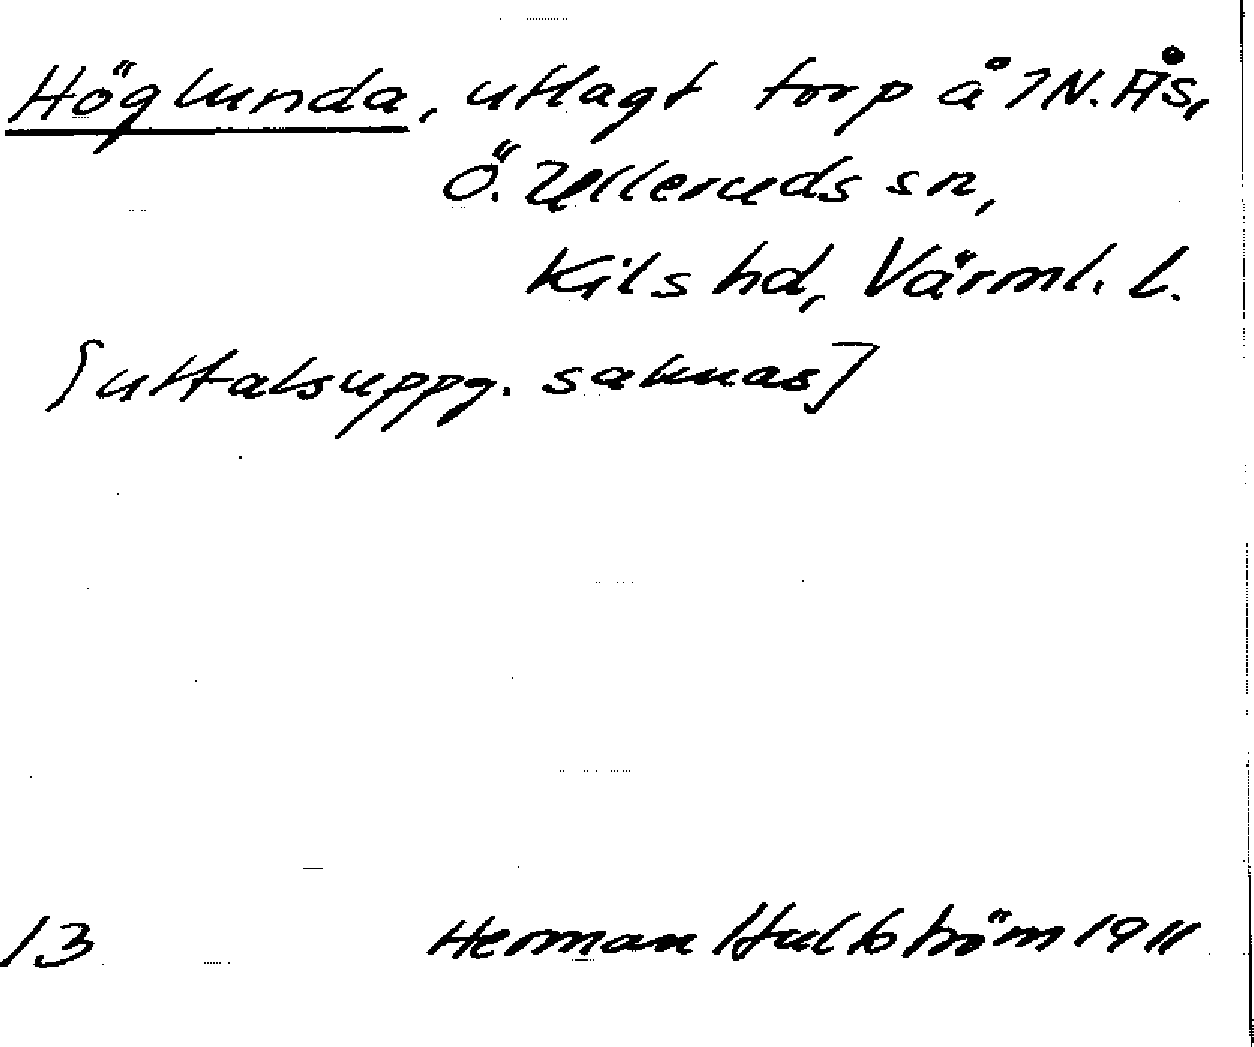 Höglunda, utlagt torp å 7 N. Ås,
Ö. Ulleruds sn,
Kils hd, Värml. l.
[uttalsuppg. saknas]
13 Herman Hultström 1911